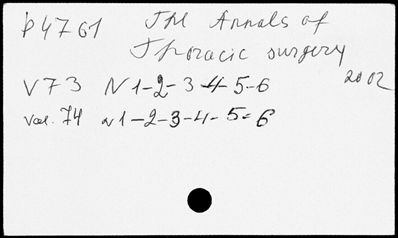 p4761 The Annals of
Thoracic surgery
V73 N 1-2-3-4-5-6 2002
vol. 74 N 1-2-3-4-5-6